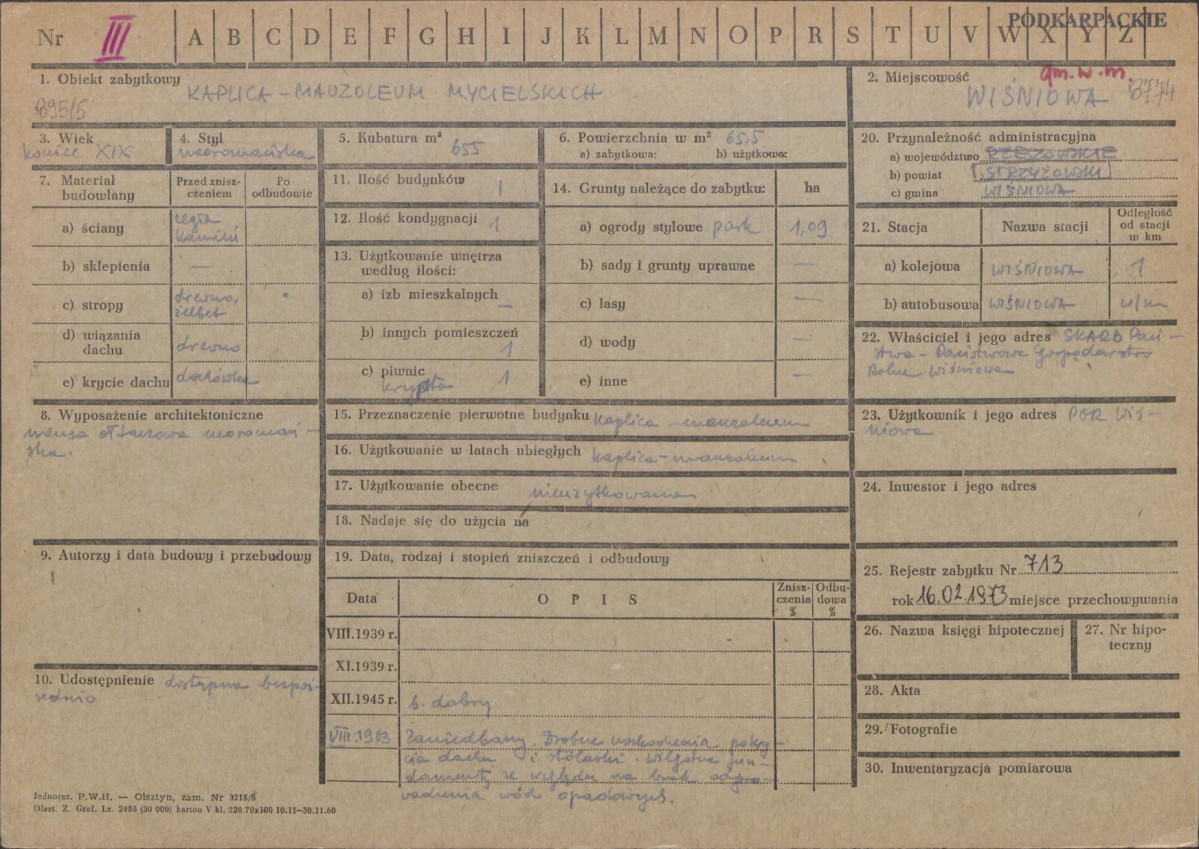 Nr III A B C D E F G H I J K L M N O P R S T U V W X Y Z
PODKARPACKIE
1. Obiekt zabytkowy
KAPLICA - MAUZOLEUM MYCIELSKICH
895/5
2. Miejscowość
gm. w m.
WIŚNIOWA 8774
3. Wiek
koniec XIX
4. Styl
neoromańska
5. Kubatura m³
655
6. Powierzchnia w m² 65,5
a) zabytkowa: b) użytkowa:
20. Przynależność administracyjna
a) województwo RZESZOWSKIE
b) powiat STRZYŻOWSKI
c) gmina WIŚNIOWA
7. Materiał budowlany
Przed zniszczeniem
Po odbudowie
a) ściany cegła
kamień
b) sklepienia —
c) stropy drewno,
żelbet
d) wiązania dachu drewno
e) krycie dachu dachówka
11. Ilość budynków 1
12. Ilość kondygnacji 1
13. Użytkowanie wnętrza
według ilości:
a) izb mieszkalnych —
b) innych pomieszczeń 1
c) piwnic 1
krypta
14. Grunty należące do zabytku: ha
a) ogrody stylowe park 1,09
b) sady i grunty uprawne —
c) lasy —
d) wody —
e) inne —
21. Stacja Nazwa stacji Odległość od stacji w km
a) kolejowa WIŚNIOWA 1
b) autobusowa WIŚNIOWA w/m
22. Właściciel i jego adres SKARB Pań-
stwa - Państwowe Gospodarstwo
Rolne Wiśniowa
8. Wyposażenie architektoniczne
mensa ołtarzowa neoromań-
ska.
15. Przeznaczenie pierwotne budynku kaplica - mauzoleum
16. Użytkowanie w latach ubiegłych kaplica - mauzoleum
17. Użytkowanie obecne nieużytkowana
18. Nadaje się do użycia na
23. Użytkownik i jego adres PGR Wiś-
niowa
24. Inwestor i jego adres
9. Autorzy i data budowy i przebudowy
19. Data, rodzaj i stopień zniszczeń i odbudowy
Data OPIS Zniszczenia % Odbudowa %
VIII.1939 r.
XI.1939 r.
XII.1945 r. b. dobry
VIII.1963 Zaniedbany. Drobne uszkodzenia pokry-
cia dachu i stolarki. Wilgotne fun-
damenty ze względu na brak odpro-
wadzenia wód opadowych.
25. Rejestr zabytku Nr 713
rok 16.02.1973 miejsce przechowywania
26. Nazwa księgi hipotecznej
27. Nr hipoteczny
10. Udostępnienie dostępna bezpoś-
rednio
28. Akta
29. Fotografie
30. Inwentaryzacja pomiarowa
Jednoraz. P.W.H. — Olsztyn, zam. Nr 3215/S
Olszt. Z. Graf. Lz. 2485 (30 000) karton V kl. 220 70x100 10.11—30.11.60